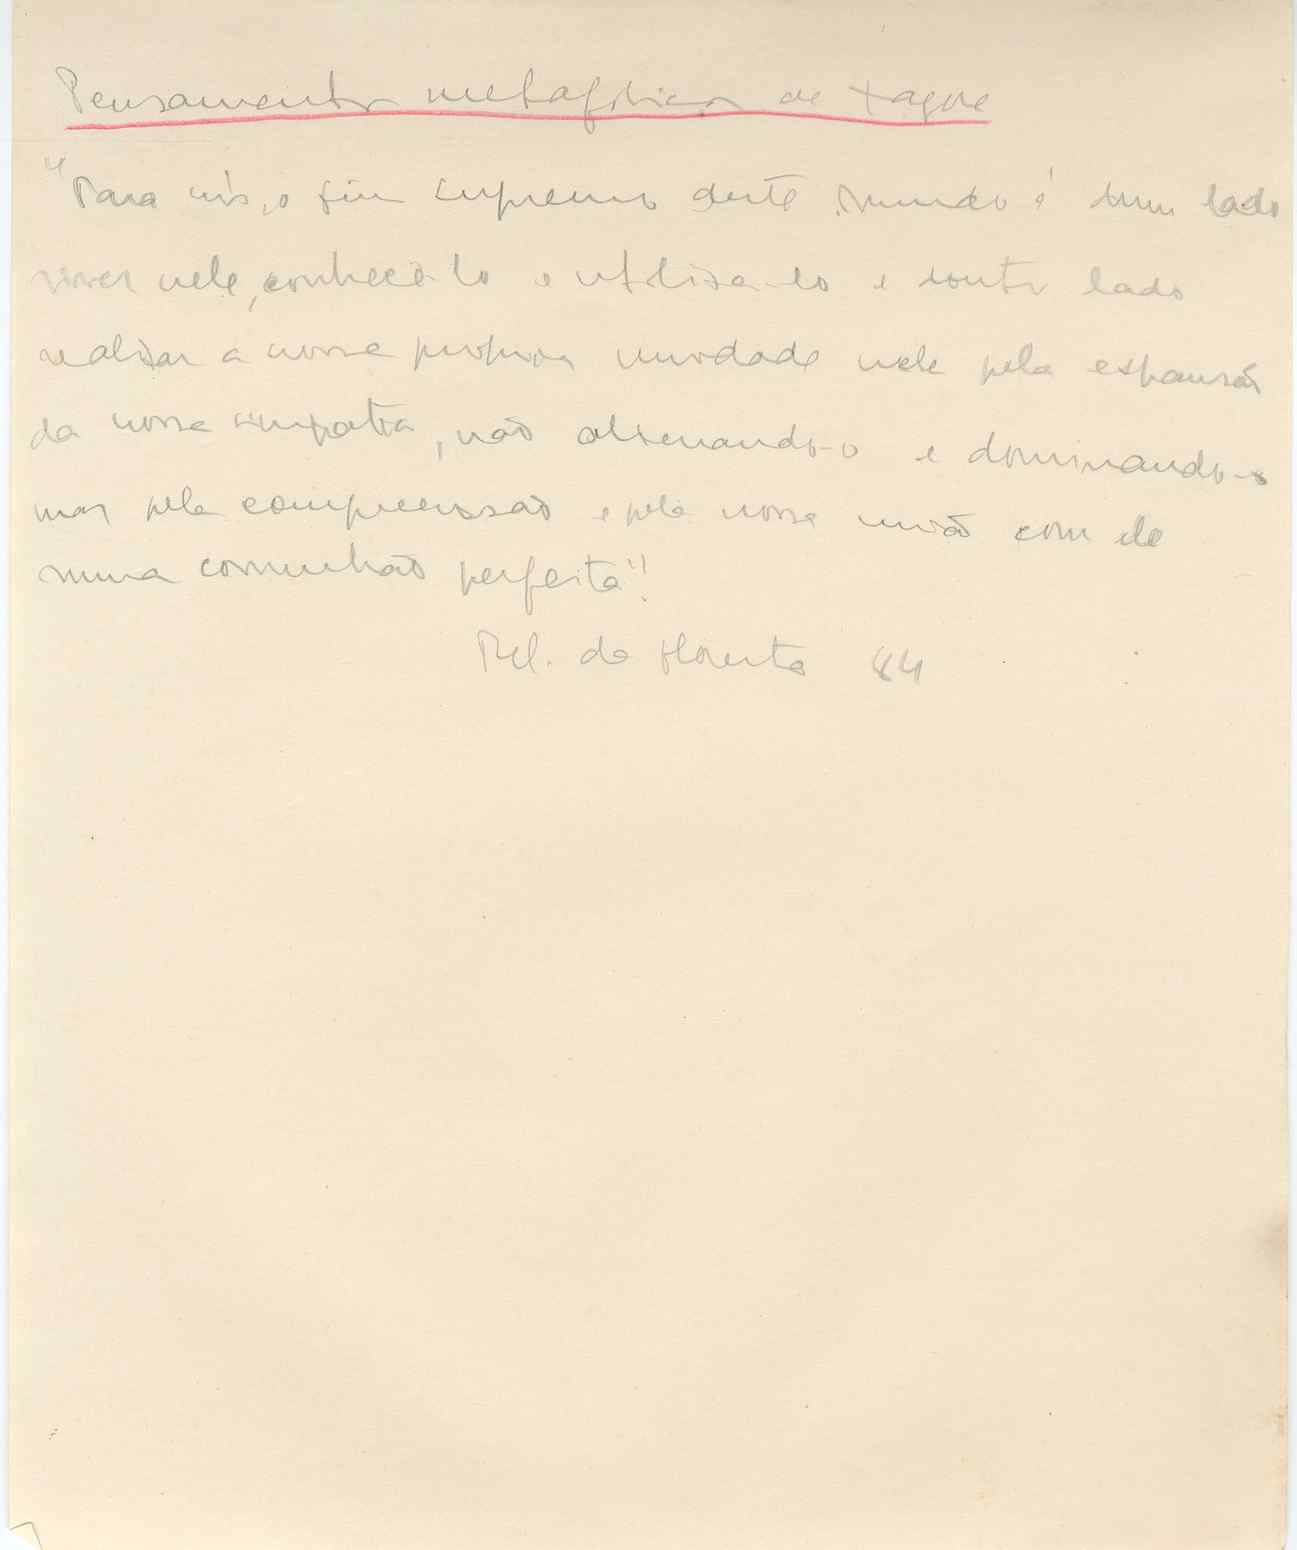 Pensamento metafísico de Tagore
"Para nós, o fim supremo deste mundo é dum lado
viver nele, conhecê-lo e utilisa-lo e doutro lado
realisar a nossa propria unidade nele pela expansão
da nossa simpatia, não alienando-o e dominando-o
mas pela compreensão e pela nossa união com ele
numa comunhão perfeita".
Rel. da Floresta 44